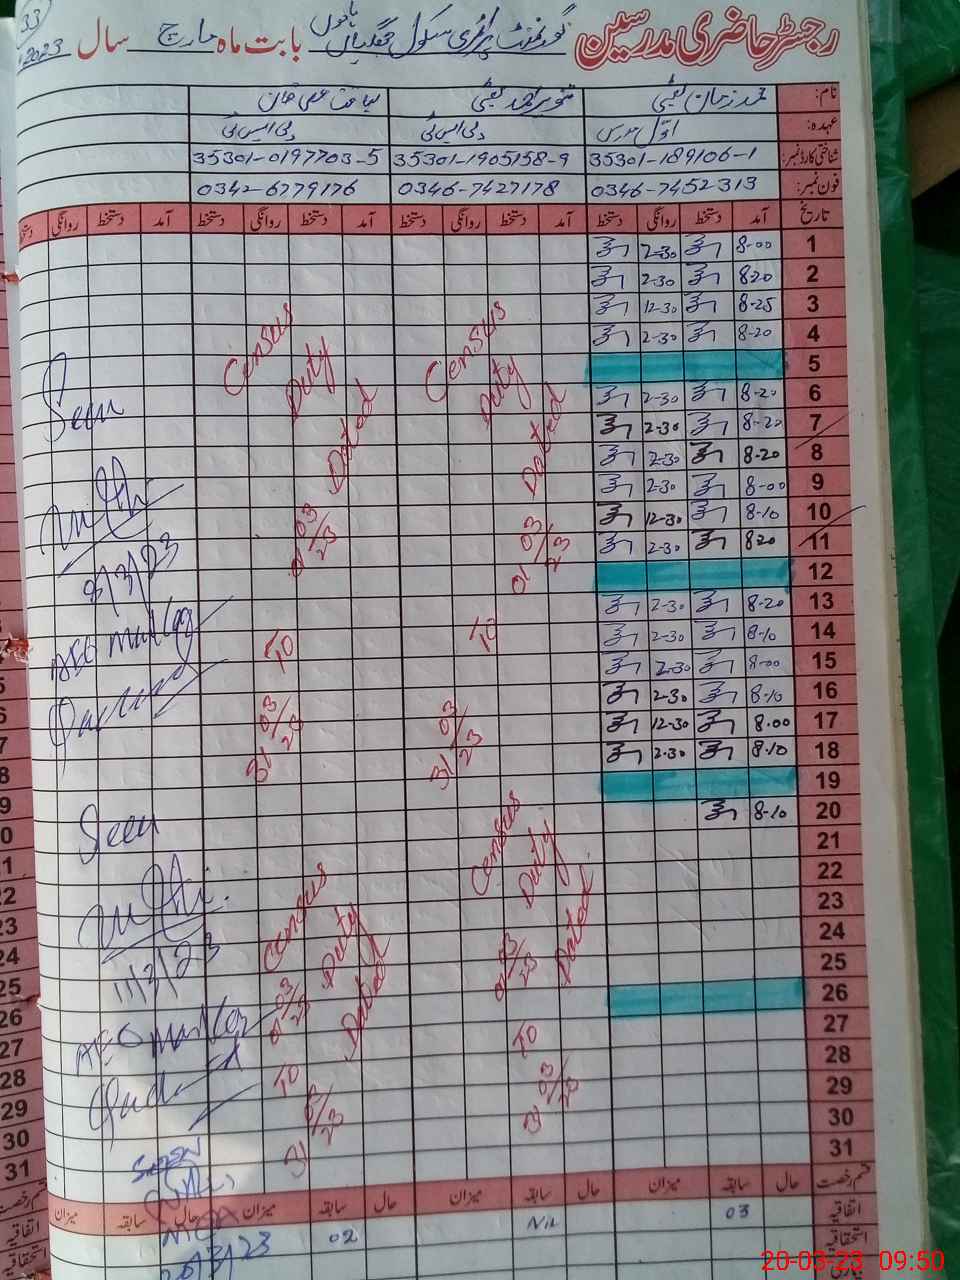 33
رجسٹر حاضری مدرسین گورنمنٹ پرائمری سکول بابت ماہ مارچ سال 2023
نام: محمد زمان
عہدہ: اول مدرس
شناختی کارڈ نمبر: 35301-189106-1 35301-1905158-9 35301-0197703-5
فون نمبر: 0346-7452313 0346-7427178 0342-6779176
تاریخ آمد دستخط روانگی دستخط آمد دستخط روانگی دستخط آمد دستخط روانگی دستخط آمد دستخط روانگی دستخط
1 8-00 2-30
2 8-20 2-30
3 8-25 12-30
4 8-20 2-30
5
6 8-20 2-30
7 8-20 2-30
8 8-20 2-30
9 8-00 2-30
10 8-10 12-30
11 8-20 2-30
12
13 8-20 2-30
14 8-10 2-30
15 8-00 2-30
16 8-10 2-30
17 8-00 12-30
18 8-10 2-30
19
20 8-10
21
22
23
24
25
26
27
28
29
30
31
Census
Duty
Dated
01/03/23
To
31/03/23
Census
Duty
Dated
01/03/23
To
31/03/23
Census
Duty
Dated
01/03/23
To
31/03/23
Census
Duty
Dated
01/03/23
To
31/03/23
Seen
8/3/23
AEO
Seen
11/3/23
AEO
قسم رخصت حال سابقہ میزان حال سابقہ میزان حال سابقہ میزان حال سابقہ میزان
اتفاقیہ 03 Nil 02
استحقاقیہ
20-03-23 09:50